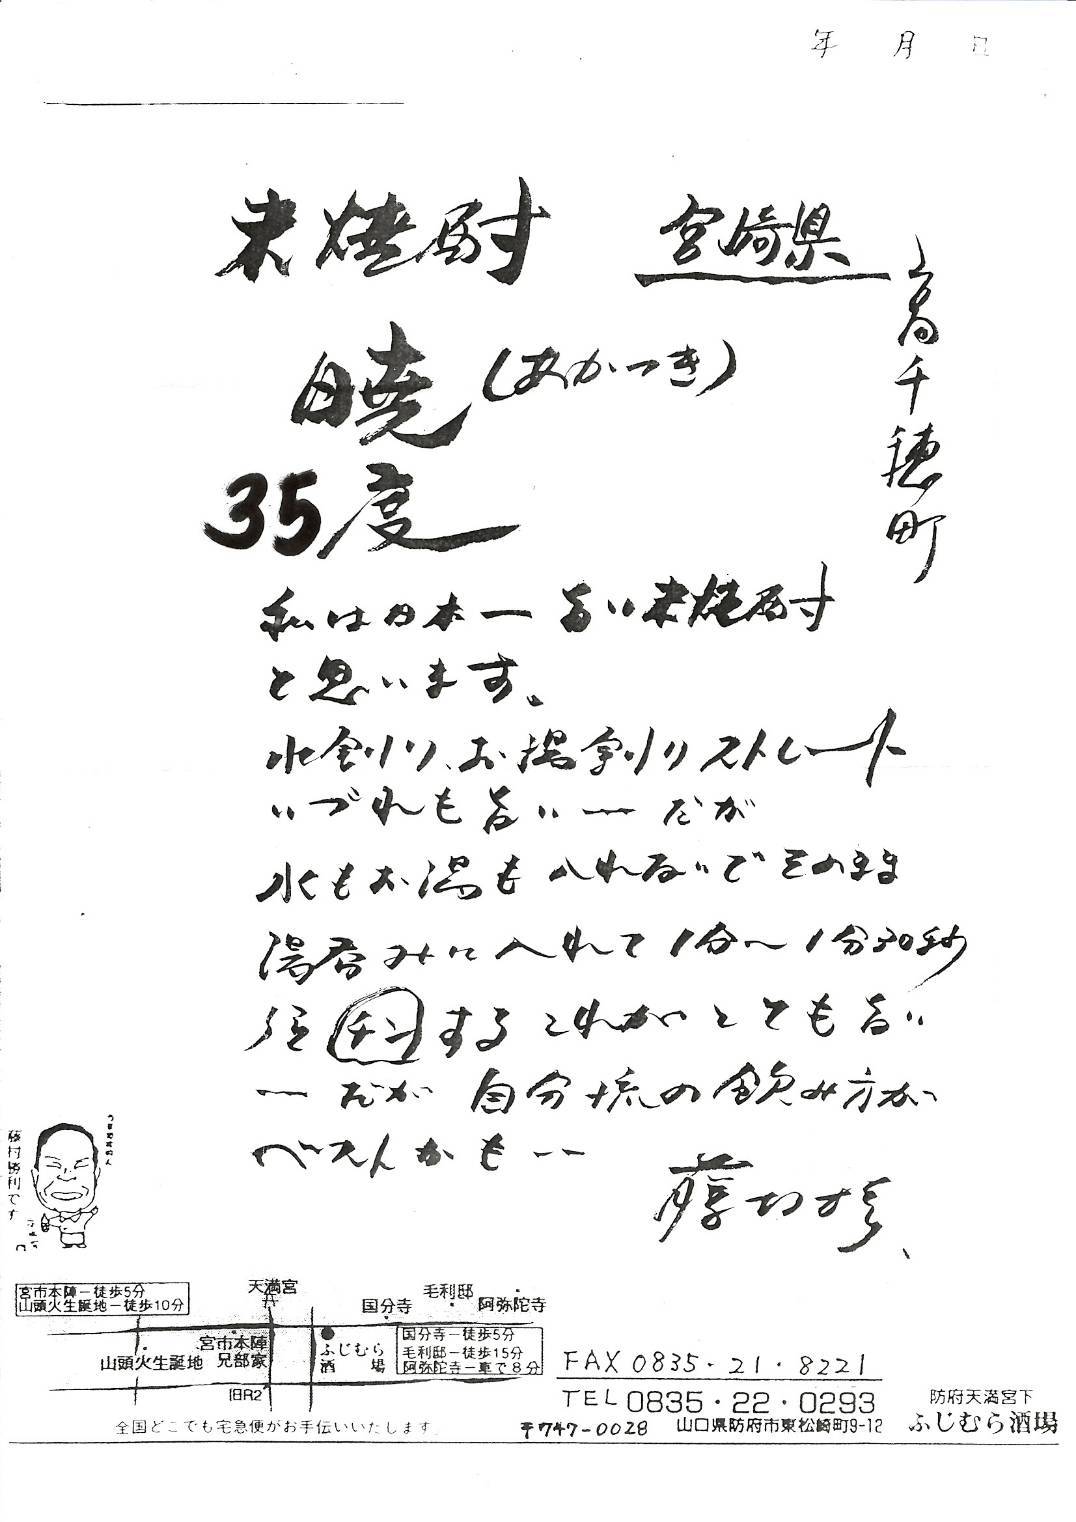 年 月 日
米焼酎 宮崎県
高千穂町
暁(あかつき)
35度
私は日本一旨い米焼酎
と思います。
水割り、お湯割りストレート
いづれも旨い—だが
水もお湯も入れないでそのまま
湯呑みに入れて1分〜1分30秒
チンする これがとても旨い
—だが 自分流の飲み方が
ベストかも--
藤村
藤村勝利です
宮市本陣ー徒歩5分
山頭火生誕地ー徒歩10分
天満宮
国分寺
毛利邸
阿弥陀寺
宮市本陣
兄部家
山頭火生誕地
旧R2
ふじむら
酒場
国分寺ー徒歩5分
毛利邸ー徒歩15分
阿弥陀寺ー車で8分
FAX 0835・21・8221
TEL 0835・22・0293
全国どこでも宅急便がお手伝いいたします。
〒747-0028 山口県防府市東松崎町9-12
防府天満宮下
ふじむら酒場